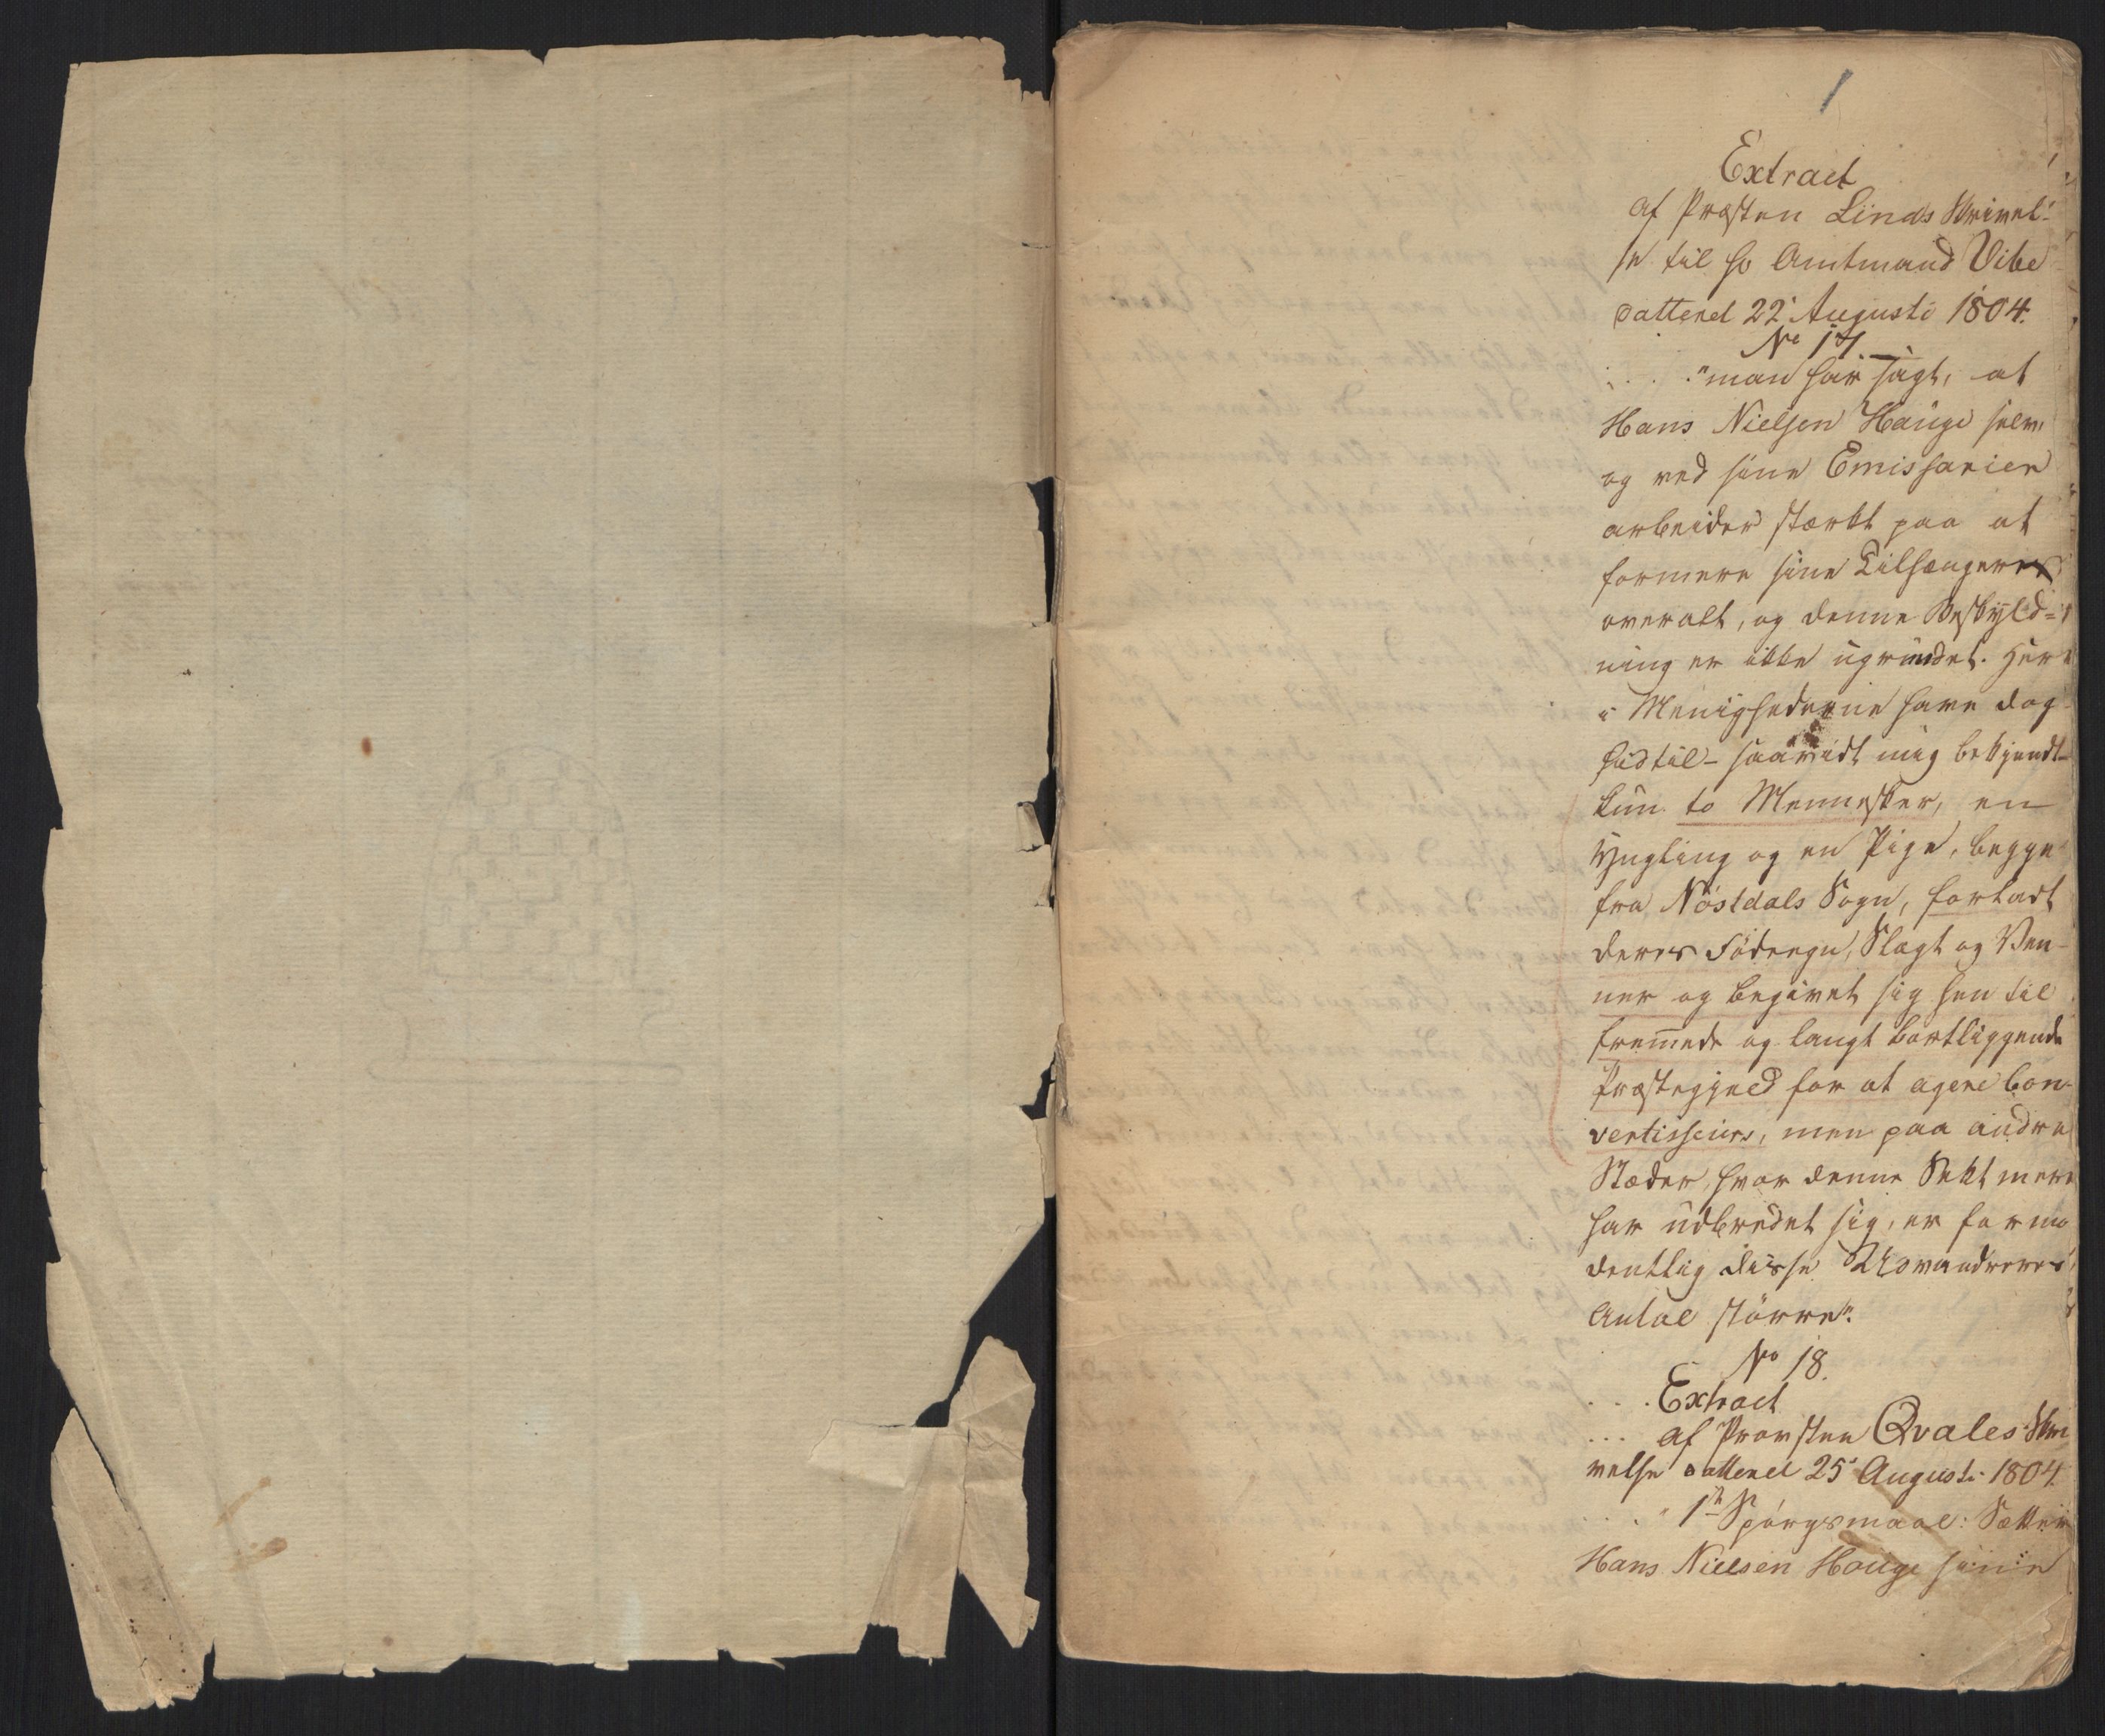 1
Extract
af Præsten Linds Skrivel-
se til Hr Amtmand Vibe
datteret 22 Augusti 1804.
No 17.
. . . "man har sagt, at
Hans Nielsen Hauge selv,
og ved sine Emissarier
arbeider stærkt paa at
formere sine Tilhængere
overalt, og denne Beskyld=
ning er ikke ugrundet. Her
i Menighederne have dog
hidtil - saavidt mig bekjendt -
kun to Mennesker, en
Yngling og en Pige, begge
fra Nöstdals Sogn, forladt
deres Födeegn, Slægt og Ven-
ner og begivet sig hen til
fremede og langt bortliggende
Præstegjeld for at agere Con-
vertisseurs, men paa andre
Stæder, hvor denne Sekt mere
har udbredet sig, er formo
dentlig disse Udvandreres
Antal större".
No 18.
. . . Extract
... af Provsten Qvales Skri
velse datteret 25 Augusti 1804.
. . . " 1te Spörgsmaal: Sætter
Hans Nielsen Houge sine